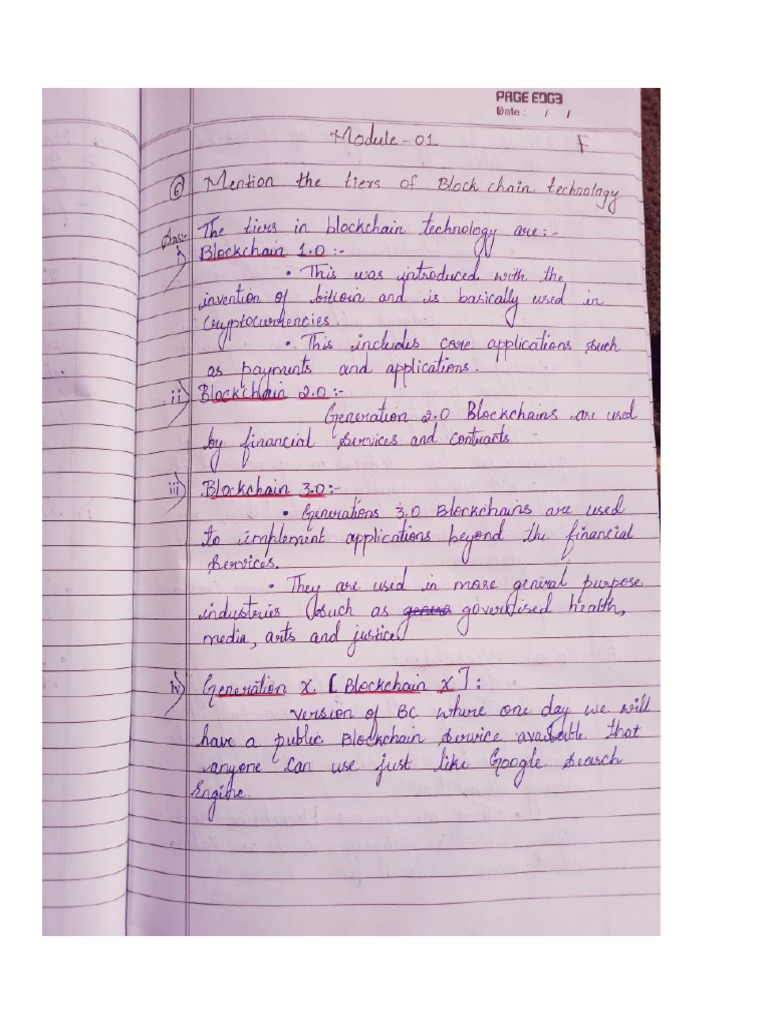 PAGE EDGE
Date: / /
Module-01
F
⑥ Mention the tiers of Block chain technology
Ans:- The tiers in blockchain technology are:-
i) Blockchain 1.0:-
• This was introduced with the
invention of bitcoin and is basically used in
cryptocurrencies.
• This includes core applications such
as payments and applications.
ii) Blockchain 2.0:-
Generation 2.0 Blockchains are used
by financial services and contracts.
iii) Blockchain 3.0:-
• Generations 3.0 Blockchains are used
to implement applications beyond the financial
services.
• They are used in more general purpose
industries (such as genera goverised health,
media, arts and justice)
iv) Generation X. [Blockchain X]:
version of BC where one day we will
have a public Blockchain service available that
anyone can use just like Google Search
Engine.